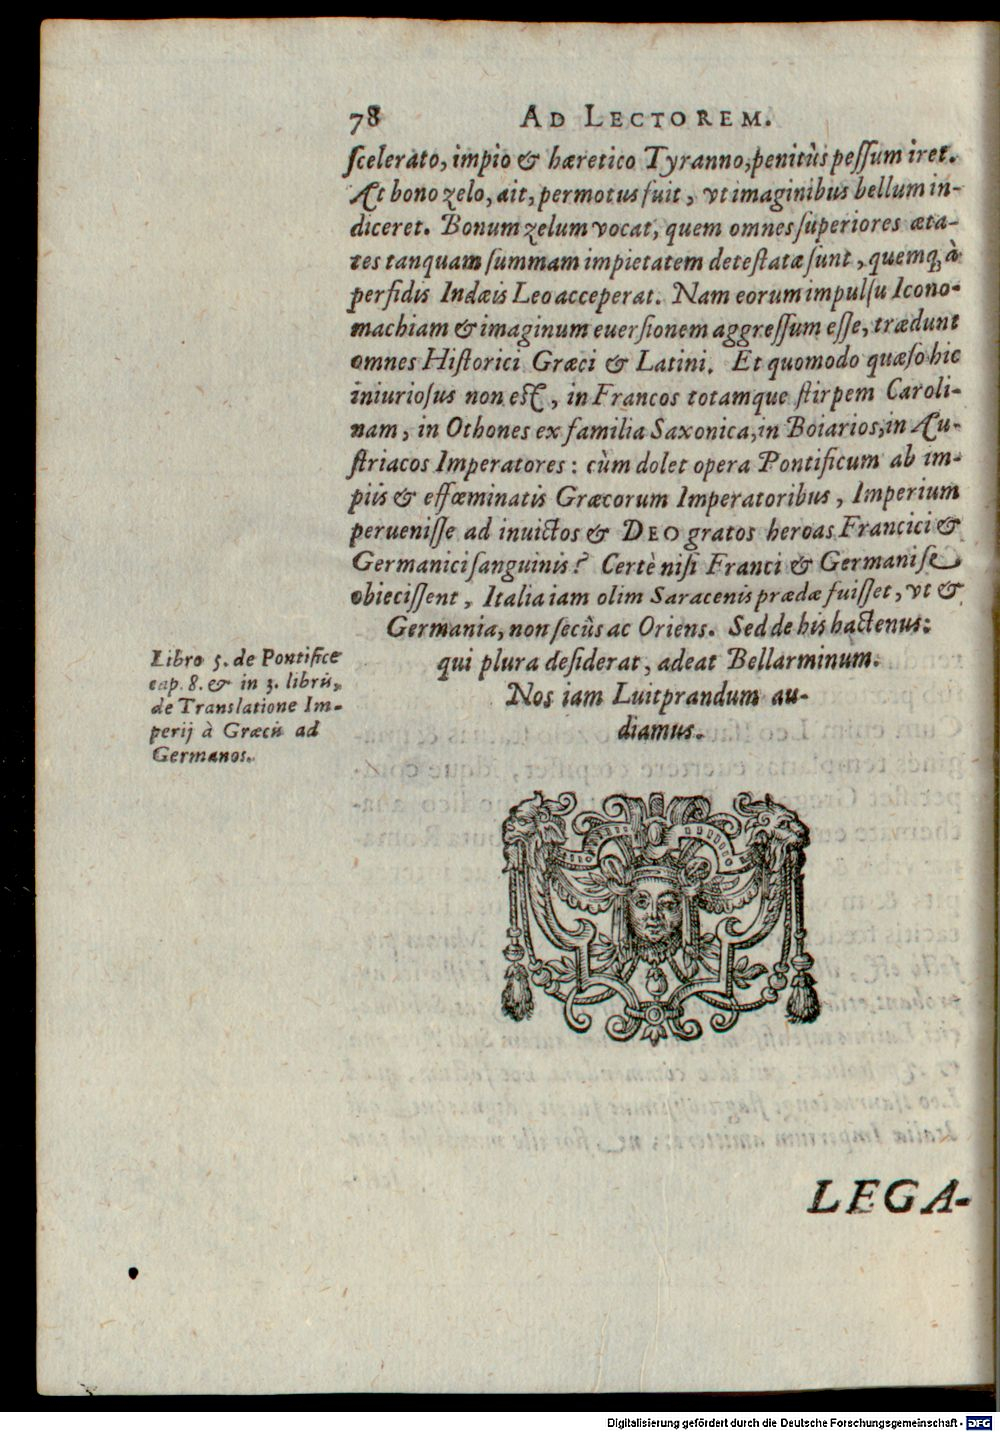 78 AD LECTOREM.
ſcelerato, impio & hæretico Tyranno, penitùs peſſum iret.
At bono zelo, ait, permotus fuit, vt imaginibus bellum in-
diceret. Bonum zelum vocat, quem omnes ſuperiores æta-
tes tanquam ſummam impietatem deteſtatæ ſunt, quemq́; à
perfidis Indæis Leo acceperat. Nam eorum impulſu Icono-
machiam & imaginum euerſionem aggreſſum eſſe, trædunt
omnes Hiſtorici Græci & Latini. Et quomodo quæſo hic
iniurioſus non eſt, in Francos totamque ſtirpem Caroli-
nam, in Othones ex familia Saxonica, in Boiarios, in Au-
ſtriacos Imperatores: cùm dolet opera Pontificum ab im-
piis & effœminatis Græcorum Imperatoribus, Imperium
perueniſſe ad inuictos & DEO gratos heroas Francici &
Germanici ſanguinis? Certè niſi Franci & Germani ſe
obieciſſent, Italia iam olim Saracenis prædæ fuiſſet, vt &
Germania, non ſecùs ac Oriens. Sed de his hactenus:
qui plura deſiderat, adeat Bellarminum.
Nos iam Luitprandum au-
diamus.
Libro 5. de Pontifice
cap. 8. & in 3. libris,
de Translatione Im-
perij à Græcis ad
Germanos.
LEGA-
Digitalisierung gefördert durch die Deutsche Forschungsgemeinschaft - DFG